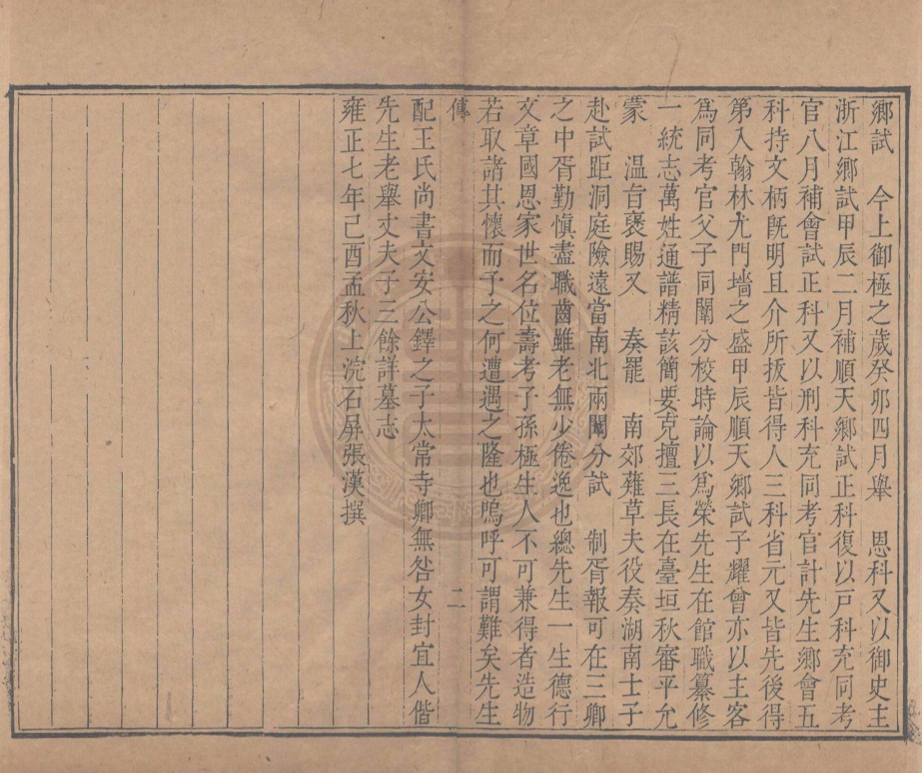 鄉試　今上御極之歲癸卯四月舉　恩科又以御史主
浙江鄉試甲辰二月補順天鄉試正科復以戸科充同考
官八月補會試正科又以刑科充同考官計先生鄉會五
科持文柄既明且介所拔皆得人三科省元又皆先後得
第入翰林尤門墻之盛甲辰順天鄉試子耀曾亦以主客
爲同考官父子同闈分校時論以爲榮先生在館職纂修
一統志萬姓通譜精該簡要克擅三長在臺垣秋審平允
蒙　溫旨褒賜又　奏罷　南郊薙草夫役奏湖南士子
赴試距洞庭險遠當南北兩闈分試　制胥報可在三卿
之中胥勤愼盡職齒雖老無少倦逸也總先生一生德行
文章國恩家世名位壽考子孫極生人不可兼得者造物
若取諸其懷而予之何遭遇之隆也嗚呼可謂難矣先生
傳　二
配王氏尚書文安公鐸之子太常寺卿無咎女封宜人偕
先生老舉丈夫子三餘詳墓志
雍正七年己酉孟秋上浣石屏張漢撰